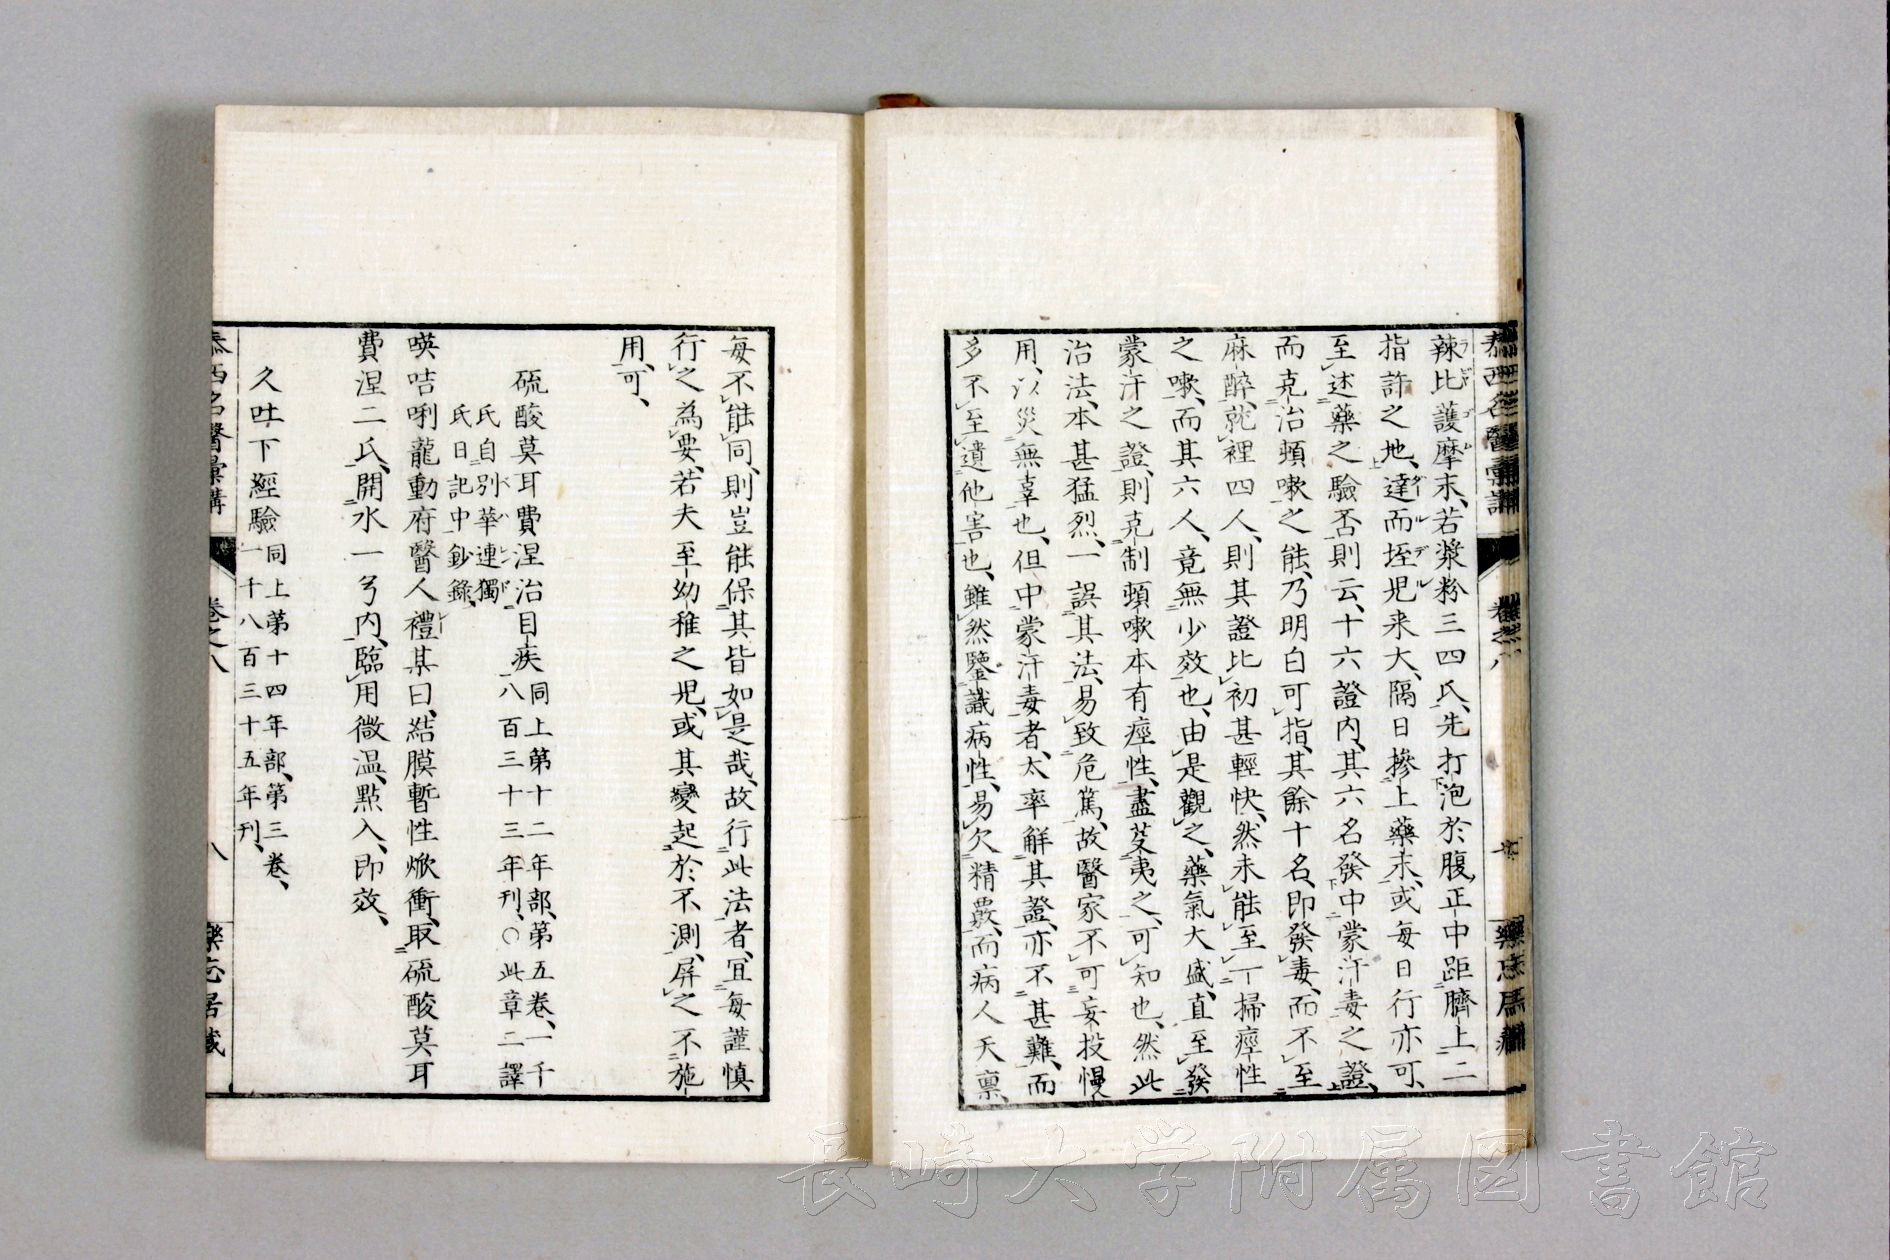 辣比護摩末、若漿粉三四氏、先打泡於腹正中距臍上二
指許之地、達而垤児来大、隔日摻上藥末、或每日行亦可、
至述藥之驗否則云、十六證内、其六名發中蒙汗毒之證、
而克治頓嗽之能、乃明白可指、其餘十名、即發毒、而不至
麻醉、就裡四人、則其證比初甚輕快、然未能至一掃痙性
之嗽、而其六人、竟無少效也、由是觀之、藥氣大盛、直至發
蒙汗之證、則克制頓嗽本有痙性、盡芟夷之、可知也、然此
治法、本甚猛烈、一誤其法、易致危篤、故醫家不可妄投慢
用、以災無辜也、但中蒙汗毒者、太率解其證、亦不甚難、而
多不至遺他害也、雖然鑒識病性、易欠精覈、而病人天稟、
每不能同、則豈能保其皆如是哉、故行此法者、宜每謹慎
行之為要、若夫至幼稚之児、或其變起於不測、屏之不施
用、可、
硫酸莫耳費涅治目疾 同上第十二年部、第五卷、一千
八百三十三年刊、○此章二譯
氏自別華連獨
氏日記中鈔錄、
暎咭唎龍動府醫人禮某曰、結膜暫性焮衝、取硫酸莫耳
費涅二氏、開水一弓内、臨用微温、點入、即效、
久吐下經驗 同上第十四年部、第三卷、
一千八百三十五年刊、
泰西名醫彙講 卷之八 八 樂忘居藏
長崎大学附属図書館